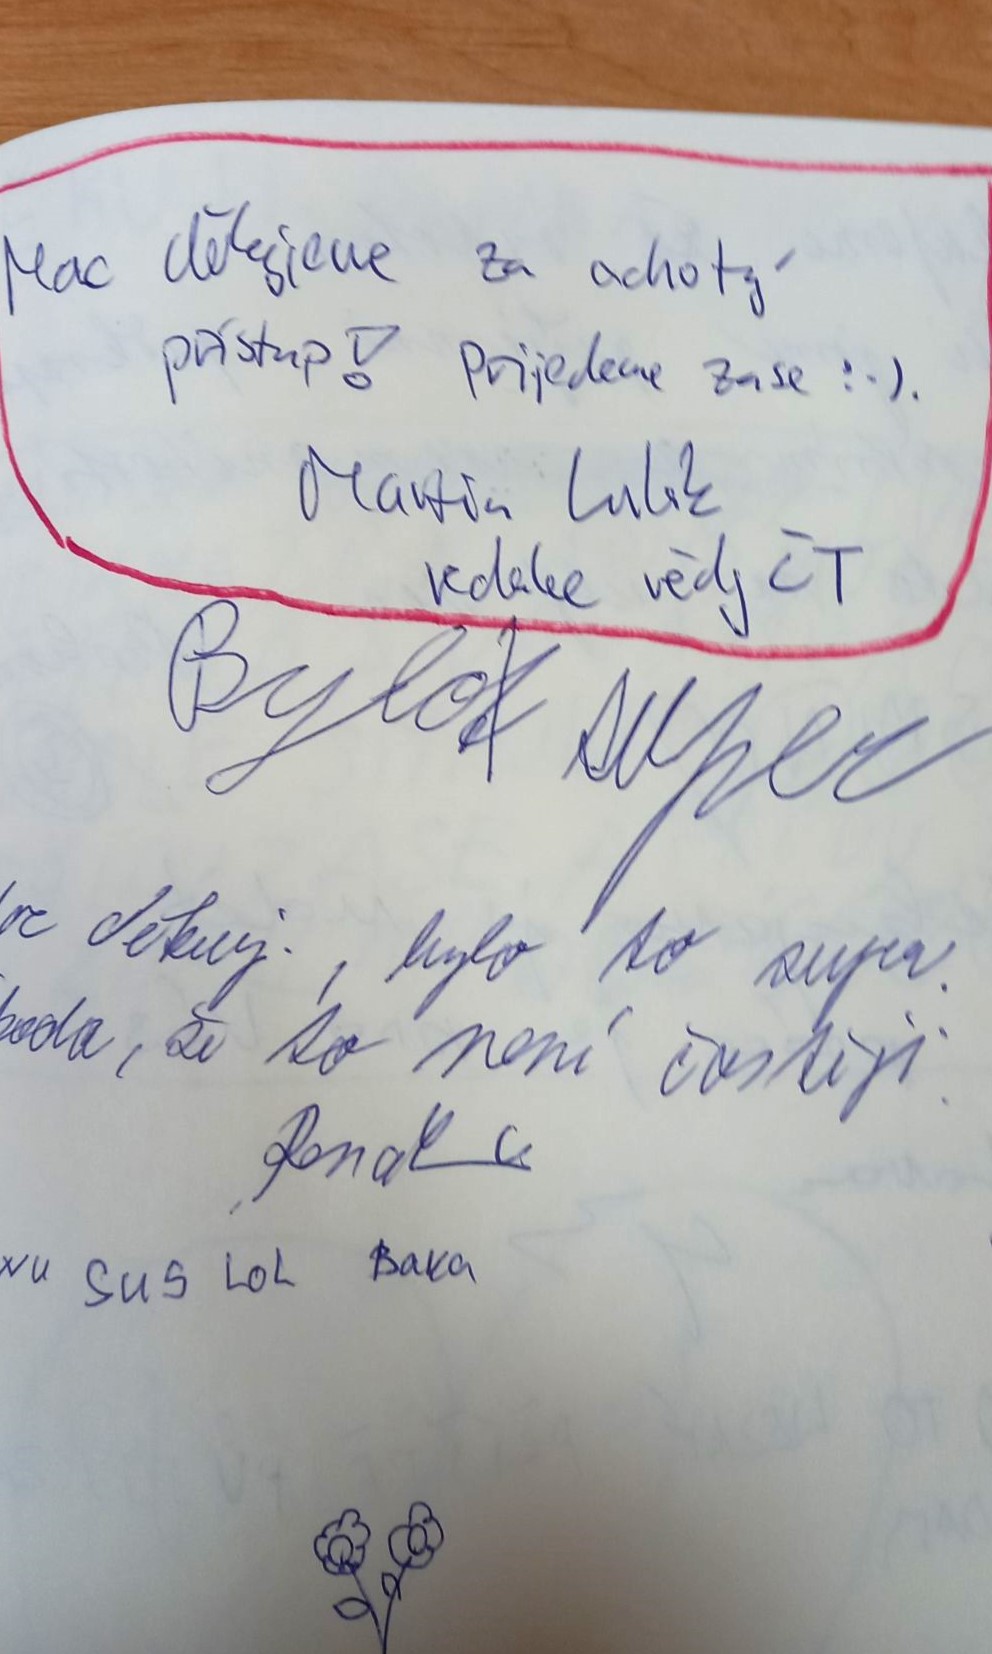 Moc děkujeme za ochotný
přístup! Přijedeme zase :-).
Martin
redakce vědy ČT
Bylo super
děkuji, bylo to super.
že to není častěji.
SUS LOL Baka